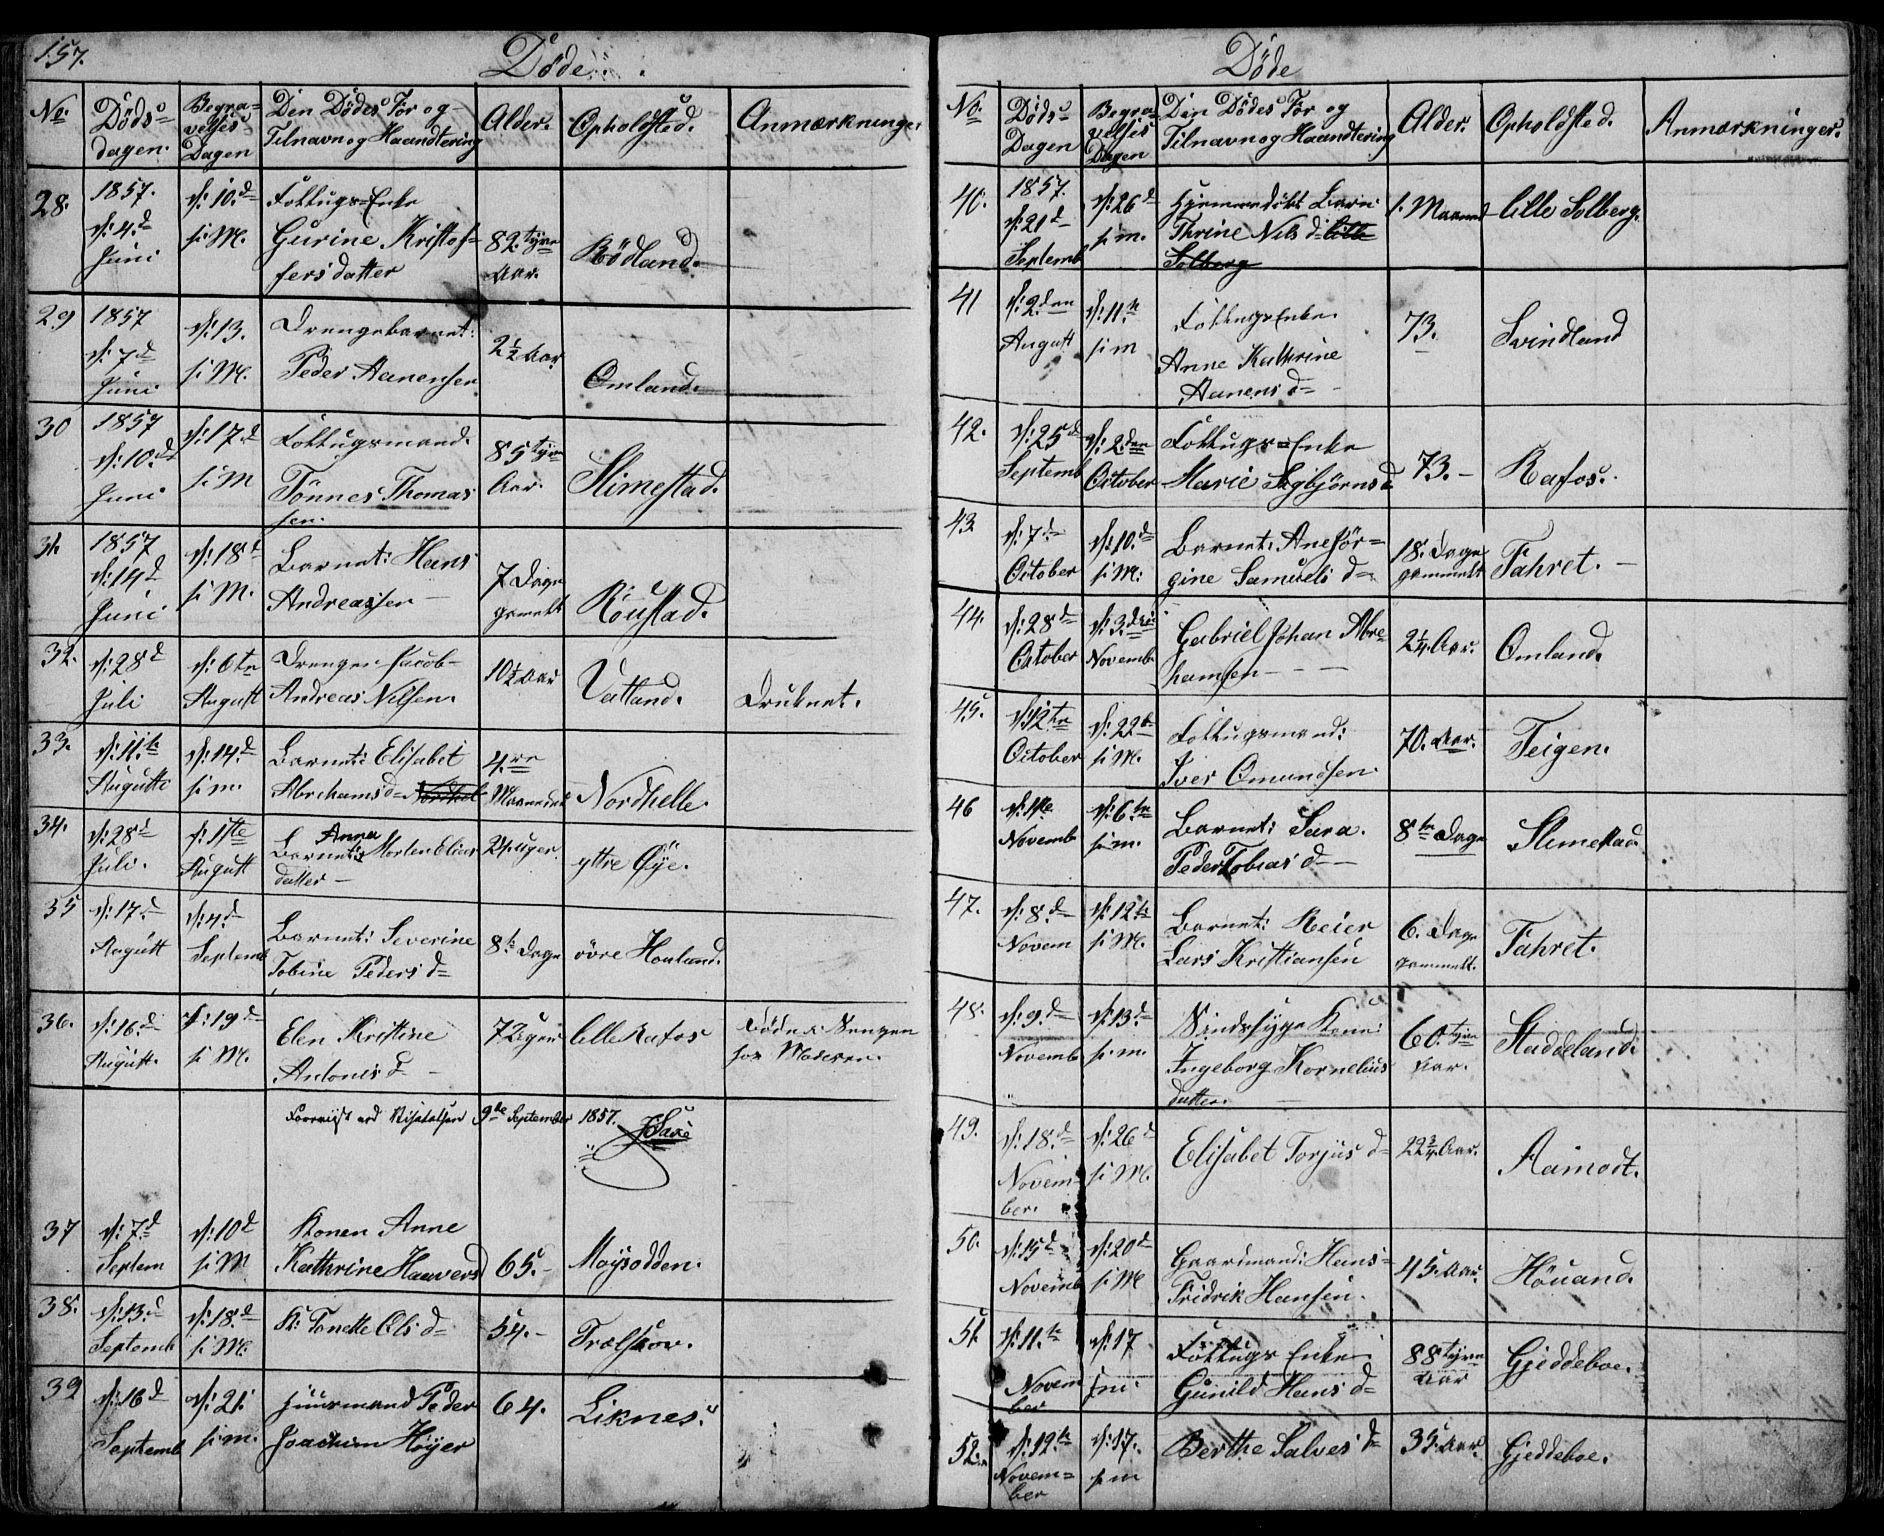 157.
Døde.
No. Døds-dagen. Begravelses Dagen Den Dødes For og Tilnavn og Haandtering Alder. Opholdsted. Anmærkninger
28. 1857. d: 4.d Juni d: 10.d s: M. Fottugs-Enke Gurine Kristoffersdatter 82 tyve Aar. Rødland.
29 1857 d: 7.d Juni d: 13. s: M. Drengebarnet: Peder Aanensen 2½ Aar Omland.
30 1857 d: 10.d Juni d: 17.d s: M Fottugsmand. Tønnes Thomassen. 85 tyve Aar. Slimestad.
31. 1857 d: 14.d Juni d: 18.d s: M. Barnet: Hans Andreassen 7 Dage gamelt Röustad.
32. d: 28.d Juli d: 6te August Drengen Jacob Andreas Nilsen. 10½ Aar Vatland. Druknet.
33. d: 11.te Auguste d: 14.d s: m. Barnet: Elisabet Abrehams d= 4.re Maaneder Nordhelle.
34. d: 28.d Juli. d: 1ste August Barnet: Anna Morten Elias datter 2 uger. yttre Øye.
35 d: 17.d August d: 4.d Septemb Barnet: Severine Tobine Peders d= 8te Dage øvre Houland.
36. d: 16.d August. d: 19.d s: M. Elen Kristine Antonis d= 7 Uger lille Rafos Døde i Sengen hos Moderen.
9de September 1857.
37 d: 7.d Septem d: 10.d s: M Konen Anne Kathrine Haavers d 65. Moysodden.
38. d: 13.d Septemb d: 18.d s: M. K: Tonette Ols d= 54. Trælskov.
39 d: 16.d Septemb d: 21. s: m. Huusmand Peder Joachim Høyer 64. Liknes.
Døde
No. Døds Dagen Begravelses Dagen Den Dødes For og Tilnavn og Haandtering Alder. Opholdsted. Anmærkninger.
40. 1857. d: 21.d Septemb d: 26.d s: m. Barn: Thrine Nils d= lille Solberg 1. Maaned lille Solberg.
41 d: 2.den August d: 11.te s: m Fottugs Enke Anne Kathrine Aanens d= 73. Svindland
42. d: 25.d Septemb d: 2.den October Fottugs=Enke Marie Sigbjørns d 73. Rafos.
43. d: 7.d October d: 10.d s: M: Barnet: Ane Jørgine Samuels d= 18. Dage gammelt Fahret.
44. d: 28.d October d: 3.die Novemb Gabriel Johan Abrehamsen 2¼ Aar. Omland.
45. d: 12te October d: 22.d s: M. Fottugsmand: Iver Omundsen. 70. Aar. Teigen.
46 d: 1ste Novemb d: 6.te s: m. Barnet: Sara. Peder Tobias d= 8te Dage Slimestad.
47. d: 8.d Novem d: 12te s: M. Barnet: Reier Lars Kristiansen 6. Dage gammelt. Fahret.
48. d: 9.d Novemb d: 13.d s: m. Sindssyge Kone: Ingeborg Kornelius datter. 60. tyve Aar. Staddeland.
49. d: 18.d November. d: 26.d s: M. Elisabet Torjus d= 22¾ Aar. Aamodt.
50. d: 15.d Novemb d: 20.d s: M Gaardmand: Hans= Fridrik Hansen. 45. Aar. Höuand.
51. d: 11.te November d: 17 Fottugs Enke Gunild Hans d= 88 tyve Aar Gjeddeboe.
52. d: 12.te November d: 17. s: m Berthe Salves d= 35. Aar. Gjeddeboe.